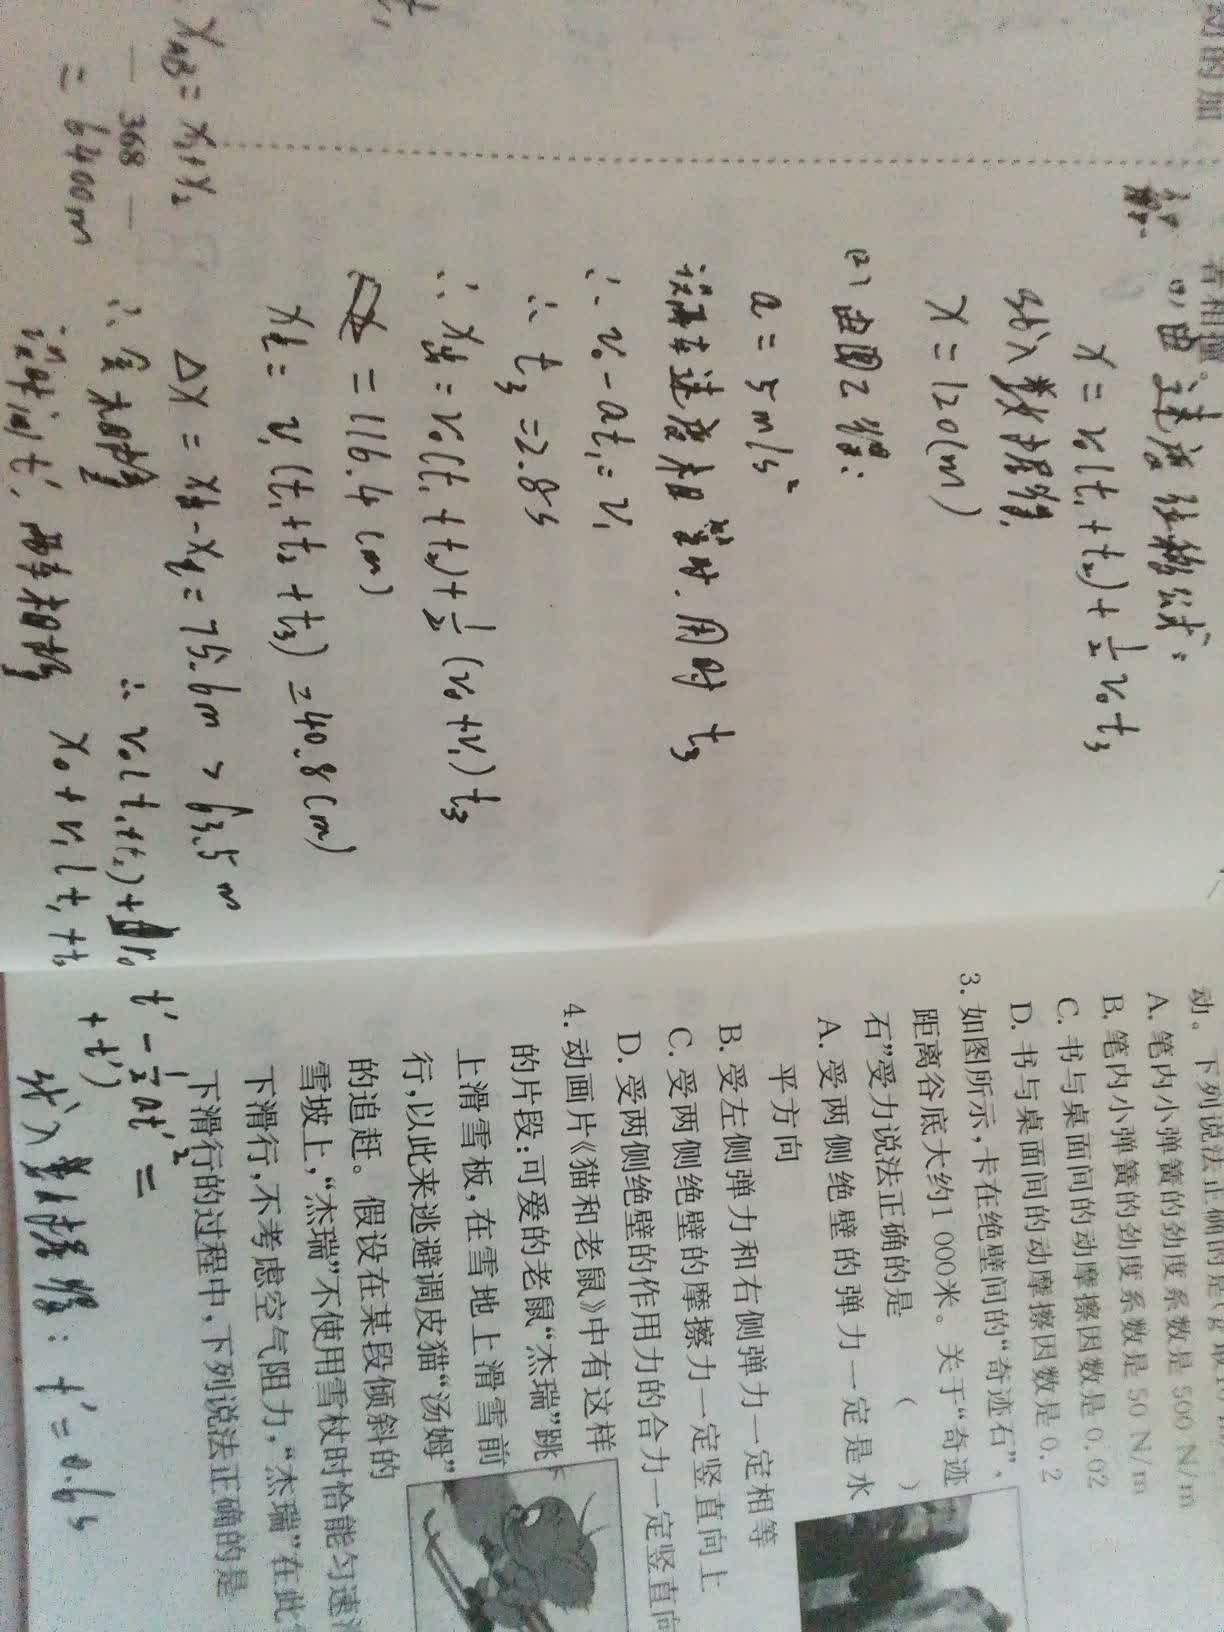 动的加
者相撞。
解: (1) 由速度位移公式:
x = v₀(t₁+t₂) + ½v₀t₃
代入数据得
x = 120(m)
(2) 由图乙得:
a = 5m/s²
设两车速度相等时.用时 t₃
∴ v₀ - at₁ = v₁
∴ t₃ = 2.8s
∴ x = v₀(t₁+t₂) + ½(v₀+v₁)t₃
= 116.4(m)
x = v₁(t₁+t₂+t₃) = 40.8(m)
Δx = x - x = 75.6m > 63.5m
∴ 会相撞
设时间t', 两车相撞
∴ v₀(t₁+t₂) + v₀t' - ½at'² =
x₀ + v₁(t₁+t₂+t')
代入数据得: t' = 0.6s
x_AB = x₁+x₂
= 6400m
— 368 —
动。下列说法正确的是
A. 笔内小弹簧的劲度系数是 500 N/m
B. 笔内小弹簧的劲度系数是 50 N/m
C. 书与桌面间的动摩擦因数是 0.02
D. 书与桌面间的动摩擦因数是 0.2
3. 如图所示,卡在绝壁间的“奇迹石”,
距离谷底大约1 000米。关于“奇迹
石”受力说法正确的是 ( )
A. 受两侧绝壁的弹力一定是水
平方向
B. 受左侧弹力和右侧弹力一定相等
C. 受两侧绝壁的摩擦力一定竖直向上
D. 受两侧绝壁的作用力的合力一定竖直向
4. 动画片《猫和老鼠》中有这样
的片段:可爱的老鼠“杰瑞”跳
上滑雪板,在雪地上滑雪前
行,以此来逃避调皮猫“汤姆”
的追赶。假设在某段倾斜的
雪坡上,“杰瑞”不使用雪杖时恰能匀速
下滑行,不考虑空气阻力,“杰瑞”在此
下滑行的过程中,下列说法正确的是